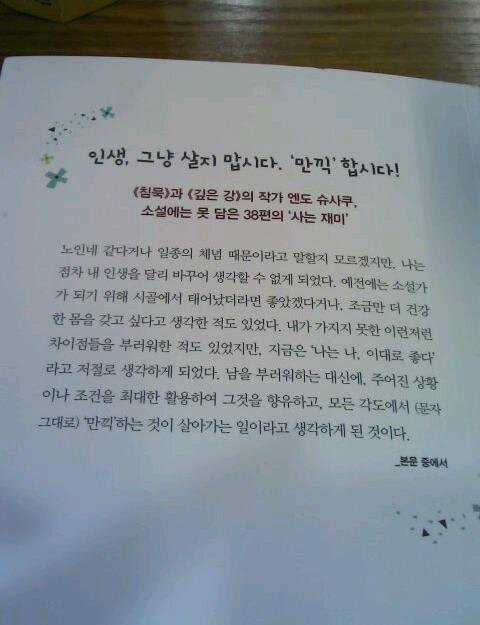 인생, 그냥 살지 맙시다. '만끽'합시다!
《침묵》과 《깊은 강》의 작가 엔도 슈사쿠,
소설에는 못 담은 38편의 '사는 재미'
노인네 같다거나 일종의 체념 때문이라고 말할지 모르겠지만, 나는
점차 내 인생을 달리 바꾸어 생각할 수 없게 되었다. 예전에는 소설가
가 되기 위해 시골에서 태어났더라면 좋았겠다거나, 조금만 더 건강
한 몸을 갖고 싶다고 생각한 적도 있었다. 내가 가지지 못한 이런저런
차이점들을 부러워한 적도 있었지만, 지금은 '나는 나, 이대로 좋다'
라고 저절로 생각하게 되었다. 남을 부러워하는 대신에, 주어진 상황
이나 조건을 최대한 활용하여 그것을 향유하고, 모든 각도에서 (문자
그대로) '만끽'하는 것이 살아가는 일이라고 생각하게 된 것이다.
_본문 중에서